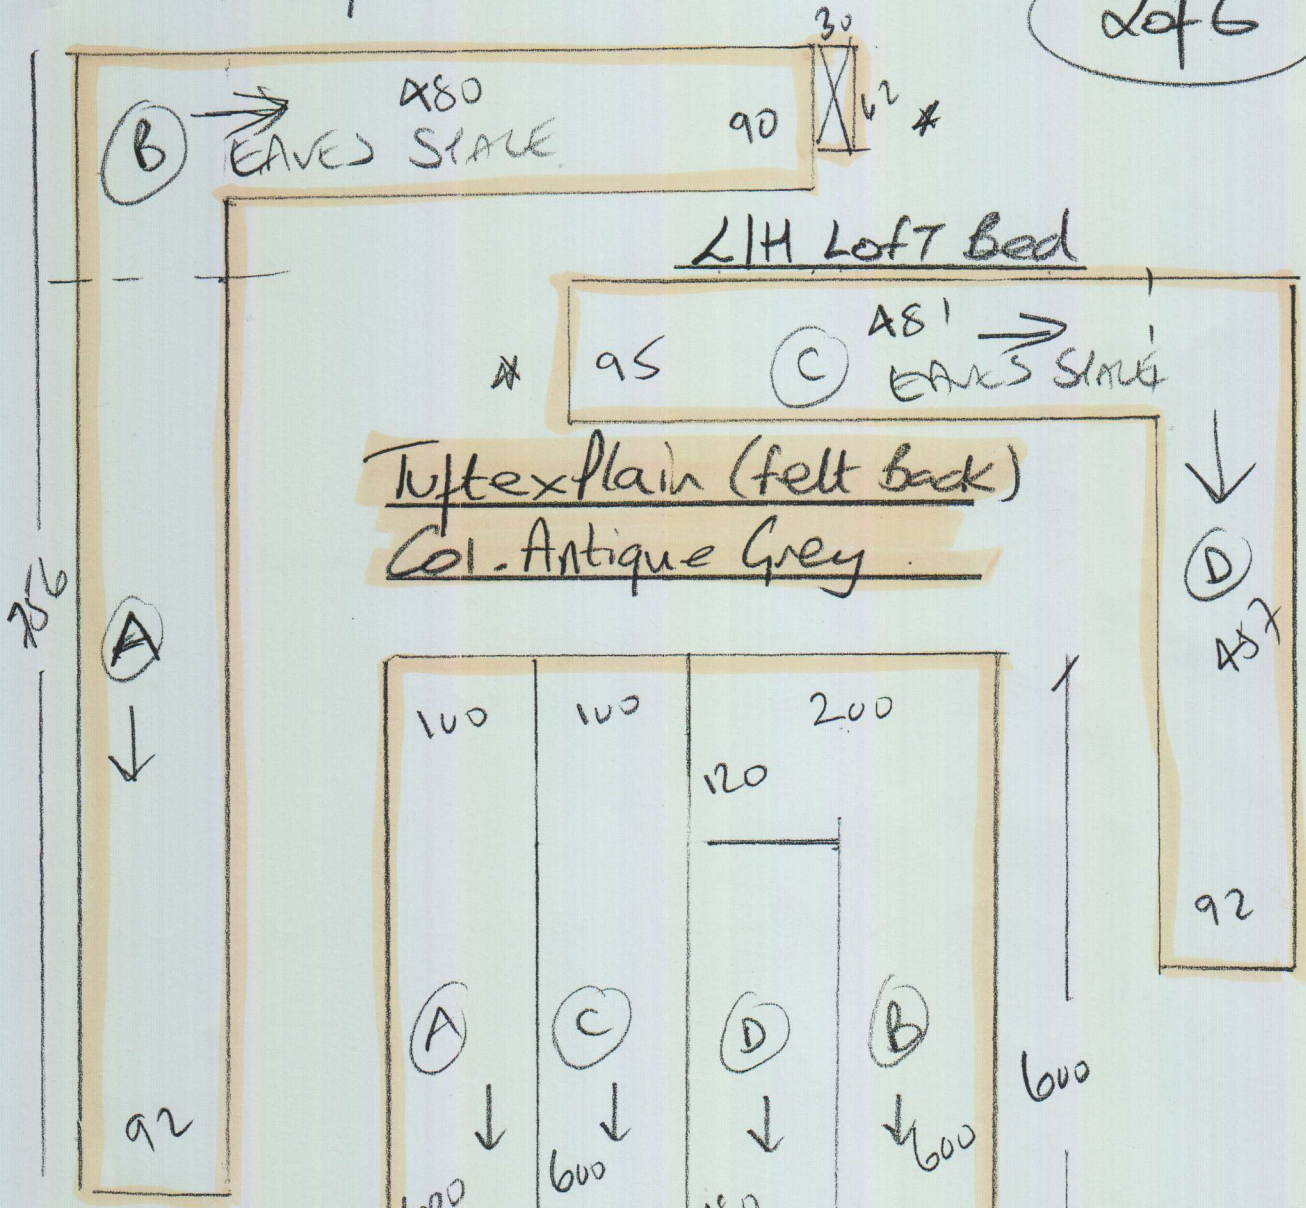 2 of 6
30
B → 480
EAVES SPACE
90
62 *
L/H Loft Bed
481 →
* 95 C EAVES SPACE
Tuftex Plain (felt Back)
Col. Antique Grey
D
487
756
A
100 100 200
120
92
A C D B
600
600 600
92